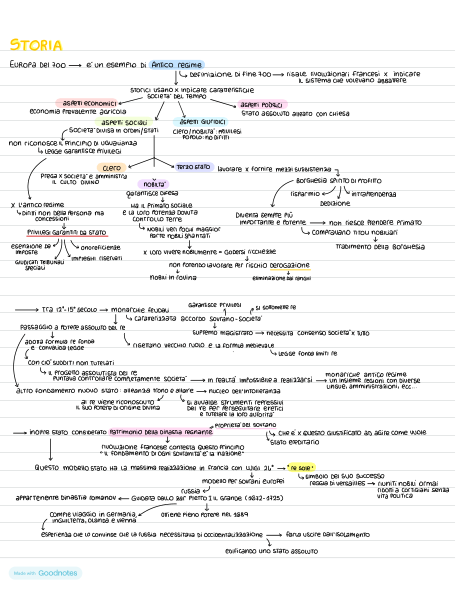 STORIA
EUROPA DEL 700 → E' UN ESEMPIO DI ANTICO REGIME
DEFINIZIONE DI FINE 700 → RISALE RIVOLUZIONARI FRANCESI X INDICARE
IL SISTEMA CHE VOLEVANO ABBATTERE
STORICI USANO X INDICARE CARATTERISTICHE
SOCIETA' DEL TEMPO
ASPETTI ECONOMICI
ECONOMIA PREVALENTE AGRICOLA
ASPETTI SOCIALI
SOCIETA' DIVISA IN ORDINI/STATI
ASPETTI GIURIDICI
CLERO/NOBILTA': PRIVILEGI
POPOLO: NO DIRITTI
ASPETTI POLITICI
STATO ASSOLUTO ALLEATO CON CHIESA
NON RICONOSCE IL PRINCIPIO DI UGUAGLIANZA
LEGGE GARANTISCE PRIVILEGI
CLERO
PREGA X SOCIETA' E AMMINISTRA
IL CULTO DIVINO
NOBILTA'
GARANTISCE DIFESA
HA IL PRIMATO SOCIALE
E LA LORO POTENZA DOVUTA
CONTROLLO TERRE
NOBILI VEN FUOCI MAGGIOR
PARTE NOBILI SPIANTATI
X LORO VIVERE NOBILMENTE = GODERSI RICCHEZZE
NON POTENDO LAVORARE PER RISCHIO DEROGAZIONE
NOBILI IN ROVINA
ELIMINAZIONE DAI RANGHI
TERZO STATO
LAVORARE X FORNIRE MEZZI SUSSISTENZA
BORGHESIA SPIRITO DI PROFITTO
RISPARMIO
DEDIZIONE
INTRAPRENDENZA
DIVENTA SEMPRE PIÙ
IMPORTANTE E POTENTE → NON RIESCE PRENDERE PRIMATO
COMPRAVANO TITOLI NOBILIARI
TRADIMENTO DELLA BORGHESIA
X L'ANTICO REGIME
DIRITTI NON DELLA PERSONA MA
CONCESSIONI
PRIVILEGI GARANTITI DA STATO
ESENZIONE DA
IMPOSTE
GIUDICATI TRIBUNALI
SPECIALI
IMPIEGHI RISERVATI
ONOREFICENZE
→ TRA 12°-15° SECOLO → MONARCHIE FEUDALI
CARATERIZZATA ACCORDO SOVRANO-SOCIETA'
GARANTISCE PRIVILEGI
SI SOTTOMETTE RE
PASSAGGIO A POTERE ASSOLUTO DEL RE
SUPREMO MAGISTRATO → NECESSITA CONSENSO SOCIETA' X TUTTO
RISPETTANO VECCHIO RUOLO E LA FORMULA MEDIEVALE
LEGGE PONE LIMITI RE
ADOTTA FORMULA RE FONDA
E CONVALIDA LEGGE
CON CIO' SUDDITI NON TUTELATI
IL PROGETTO ASSOLUTISTA DEL RE
PUNTAVA CONTROLLARE COMPLETAMENTE SOCIETA' → IN REALTÀ IMPOSSIBILE A REALIZZARSI → MONARCHIE ANTICO REGIME
UN INSIEME REGIONI CON DIVERSE
LINGUE, AMMINISTRAZIONI, ECC...
ALTRO FONDAMENTO NUOVO STATO: ALLEANZA TRONO E ALTARE → NUCLEO DELL'INTOLLERANZA
AL RE VIENE RICONOSCIUTO
IL SUO POTERE DI ORIGINE DIVINA
SI AVVALSE STRUMENTI REPRESSIVI
DEL RE PER PERSEGUITARE ERETICI
E POTERE LA LORO AUTORITA'
PROPRIETA DEL SOVRANO
→ INOLTRE STATO CONSIDERATO PATRIMONIO DELLA DINASTIA REGNANTE
CHE E' X QUESTO GIUSTIFICATO AD AGIRE COME VUOLE
STATO EREDITARIO
RIVOLUZIONE FRANCESE CONTESTA QUESTO PRINCIPIO
"IL FONDAMENTO DI OGNI SOVRANITA' E' LA NAZIONE"
QUESTO MODELLO STATO HA LA MASSIMA REALIZZAZIONE IN FRANCIA CON LUIGI 14° → "RE SOLE"
SIMBOLO DEL SUO SUCCESSO
REGGIA DI VERSAILLES → RIUNITI NOBILI ORMAI
RIDOTTI A CORTIGIANI SENZA
VITA POLITICA
MODELLO PER SOVRANI EUROPEI
RUSSIA
APPARTENENTE DINASTIA ROMANOV ← GUIDATA DALLO ZAR PIETRO I IL GRANDE (1672-1725)
COMPIE VIAGGIO IN GERMANIA,
INGHILTERRA, OLANDA E VIENNA
OTTIENE PIENO POTERE NEL 1689
ESPERIENZA CHE LO CONVINCE CHE LA RUSSIA NECESSITAVA DI OCCIDENTALIZZAZIONE → FARLA USCIRE DALL'ISOLAMENTO
EDIFICANDO UNO STATO ASSOLUTO
Made with Goodnotes